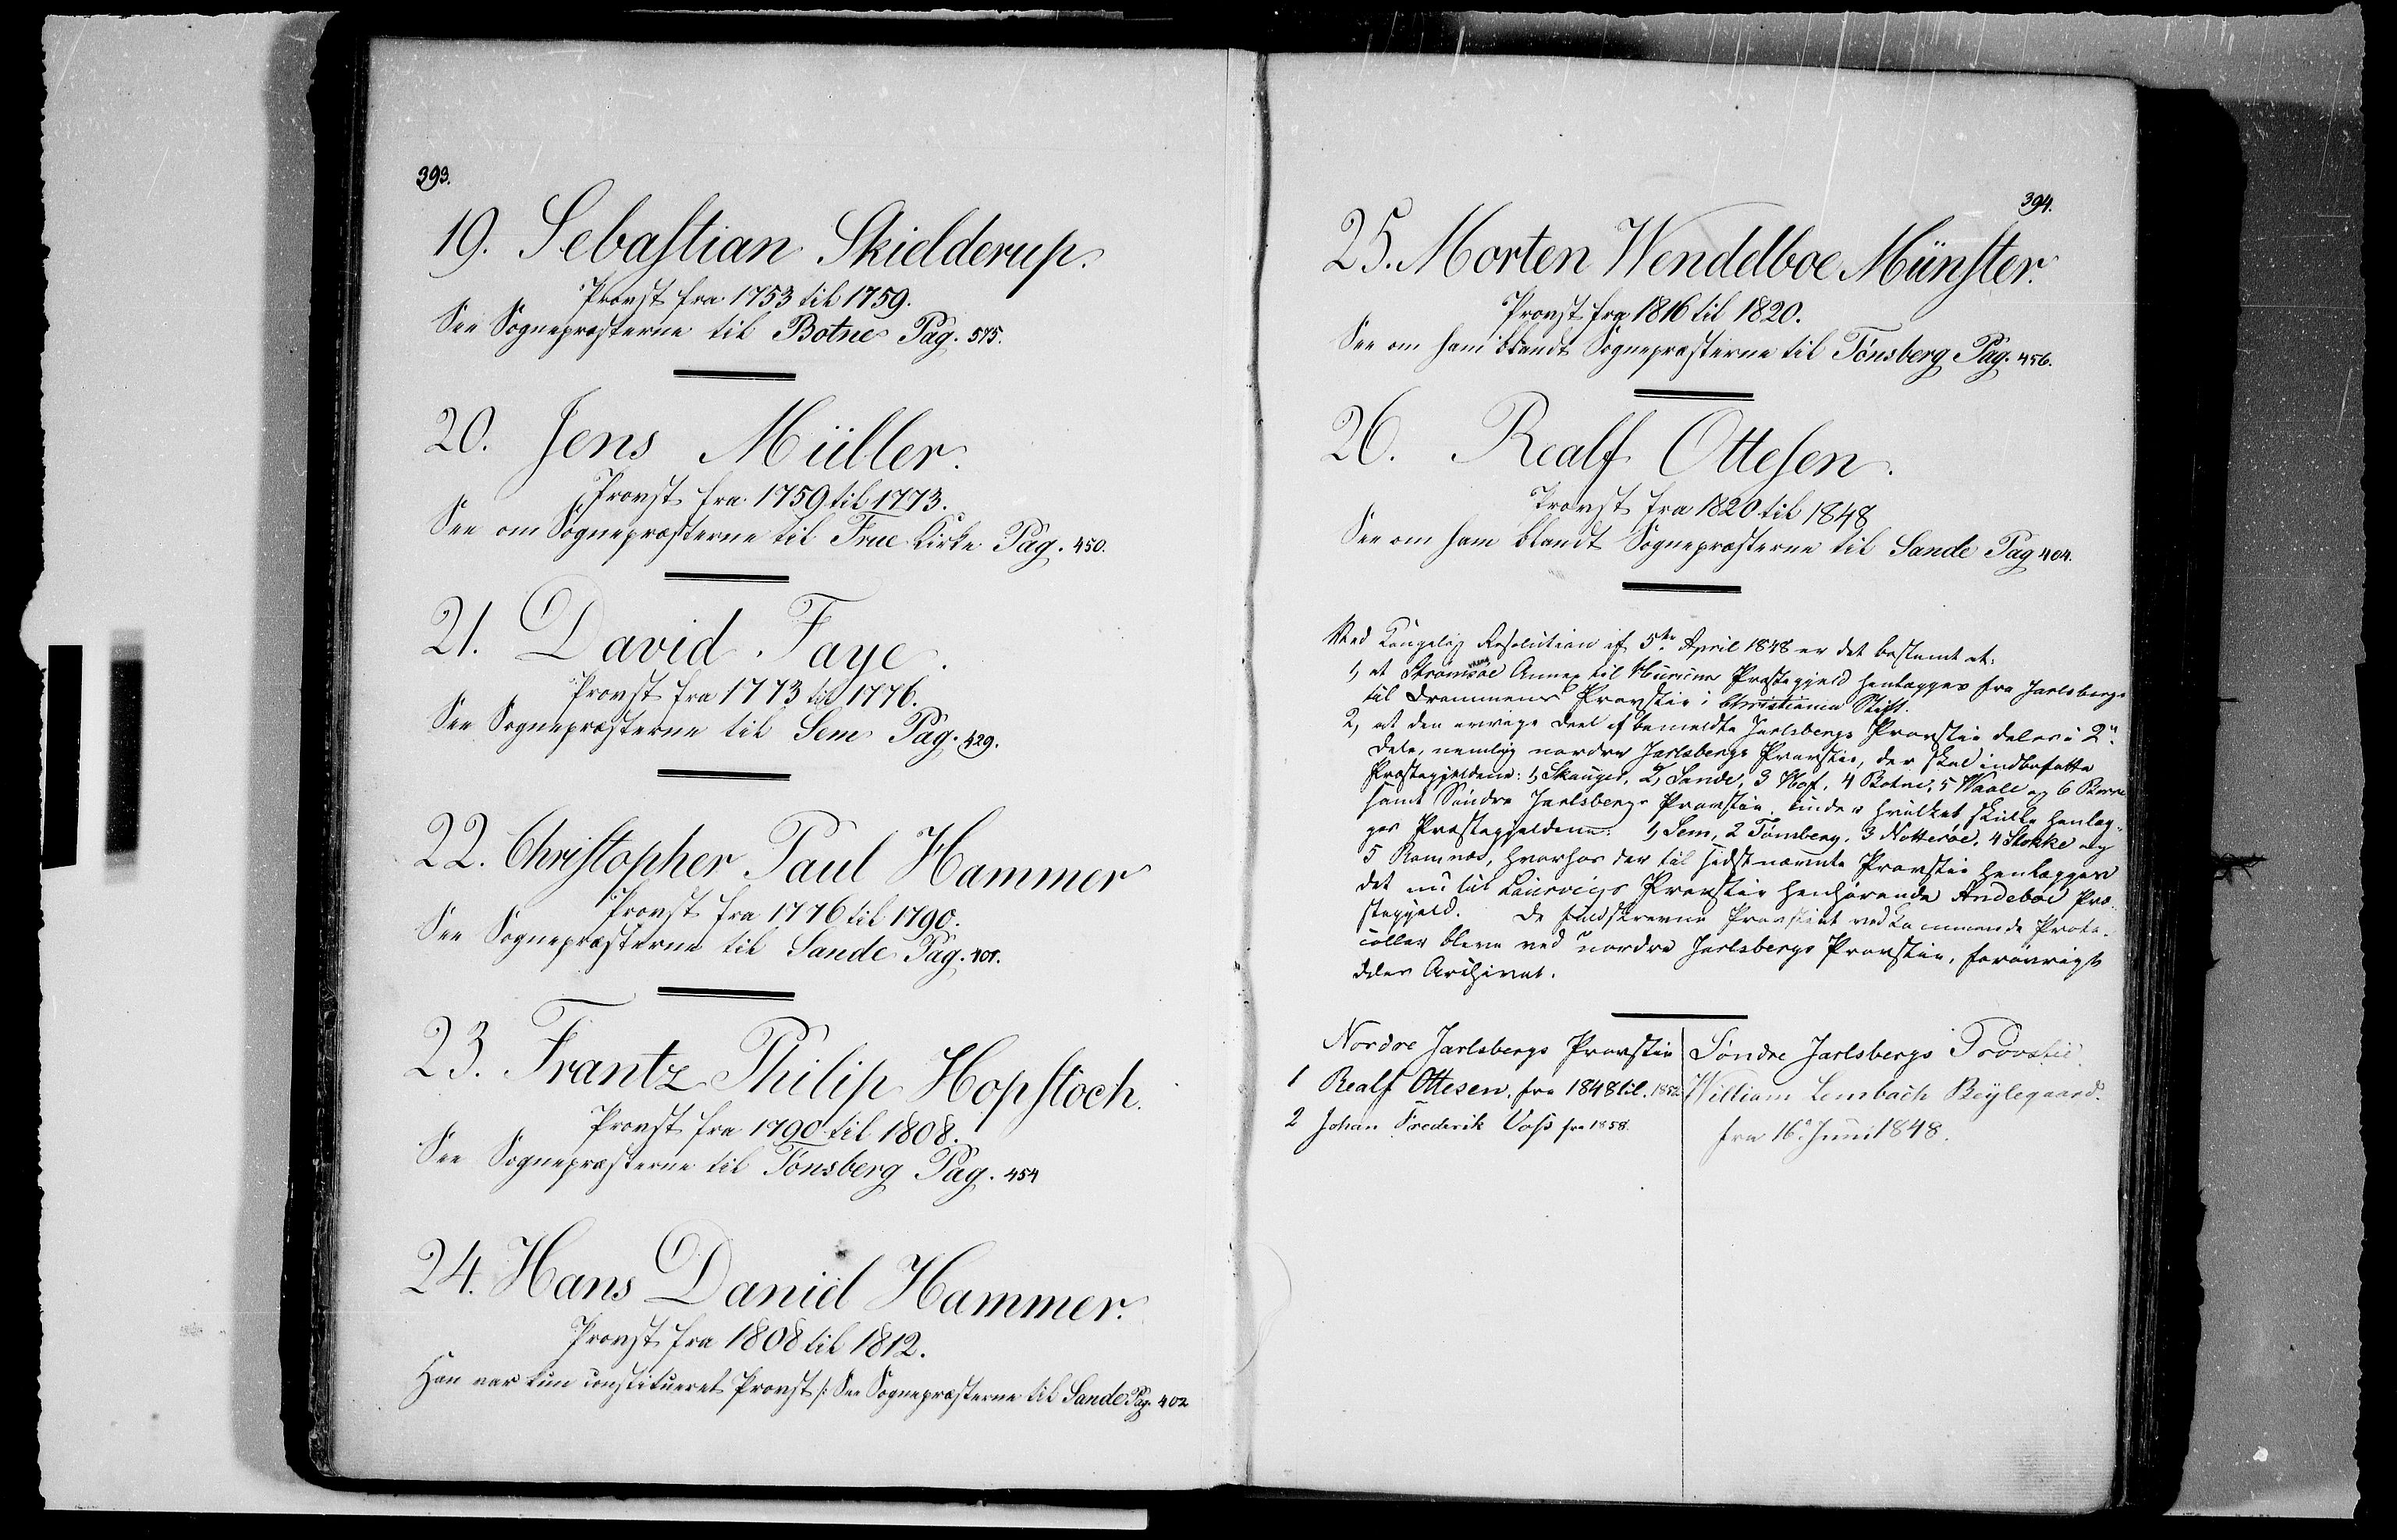 393.
19. Sebastian Skielderup.
Provst fra 1753 til 1759.
See Sognepræsterne til Botne Pag. 575.
20. Jens Müller.
Provst fra 1759 til 1773.
See om Sognepræsterne til Frue Kirke Pag. 450.
21. David Faye.
Provst fra 1773 til 1776.
See Sognepræsterne til Sem Pag. 429.
22. Christopher Paul Hammer
Provst fra 1776 til 1790.
See Sognepræsterne til Sande Pag. 401.
23. Frantz Philip Hopstoch.
Provst fra 1790 til 1808.
See Sognepræsterne til Tønsberg Pag. 454
24. Hans Daniel Hammer.
Provst fra 1808 til 1812.
Han var kun constitueret Provst /: See Sognepræsterne til Sande Pag. 402
394.
25. Morten Wendelboe Münster.
Provst fra 1816 til 1820.
See om ham blandt Sognepræsterne til Tønsberg Pag. 456.
26. Realf Ottesen.
Provst fra 1820 til 1848
See om ham blandt Sognepræsterne til Sande Pag 404.
Ved Kongelig Resolution af 5te April 1848 er det bestemt at:
1, at Annex til Hurums Præstegjeld henlægges fra Jarlsbergs
til Drammens Provstie i Christiania Stift.
2, at den øvrige Deel af bemeldte Jarlsbergs Provstie deles i 2
Dele, nemlig nordre Jarlsbergs Provstie, der skal indbefatte
Præstegjeldene: 1, Skauger, 2, Sande, 3 Hof, 4 Botne, 5 Waale og 6 Borre
samt Søndre Jarlsbergs Provstie, under hvilket skulle henlæg-
ges Præstegjeldene: 1, Sem, 2 Tønsberg, 3 Nøtterøe, 4 Stokke og
5 Ramnæs, hvorhos der til sidstnævnte Provstie henlægges
det nu til Laurvigs Provstie henhørende Andeboe Præ-
stegjeld. De Provstiet vedkommende Proto-
coller bleve ved nordre Jarlsbergs Provstie, forøvrigt
deles Archivet.
Nordre Jarlsbergs Provstie
1 Realf Ottesen, fra 1848 til 1852
2 Johan Frederik Voss fra 1858.
Søndre Jarlsbergs Provstie.
William Lembach Reylegaard.
fra 16 Juni 1848.